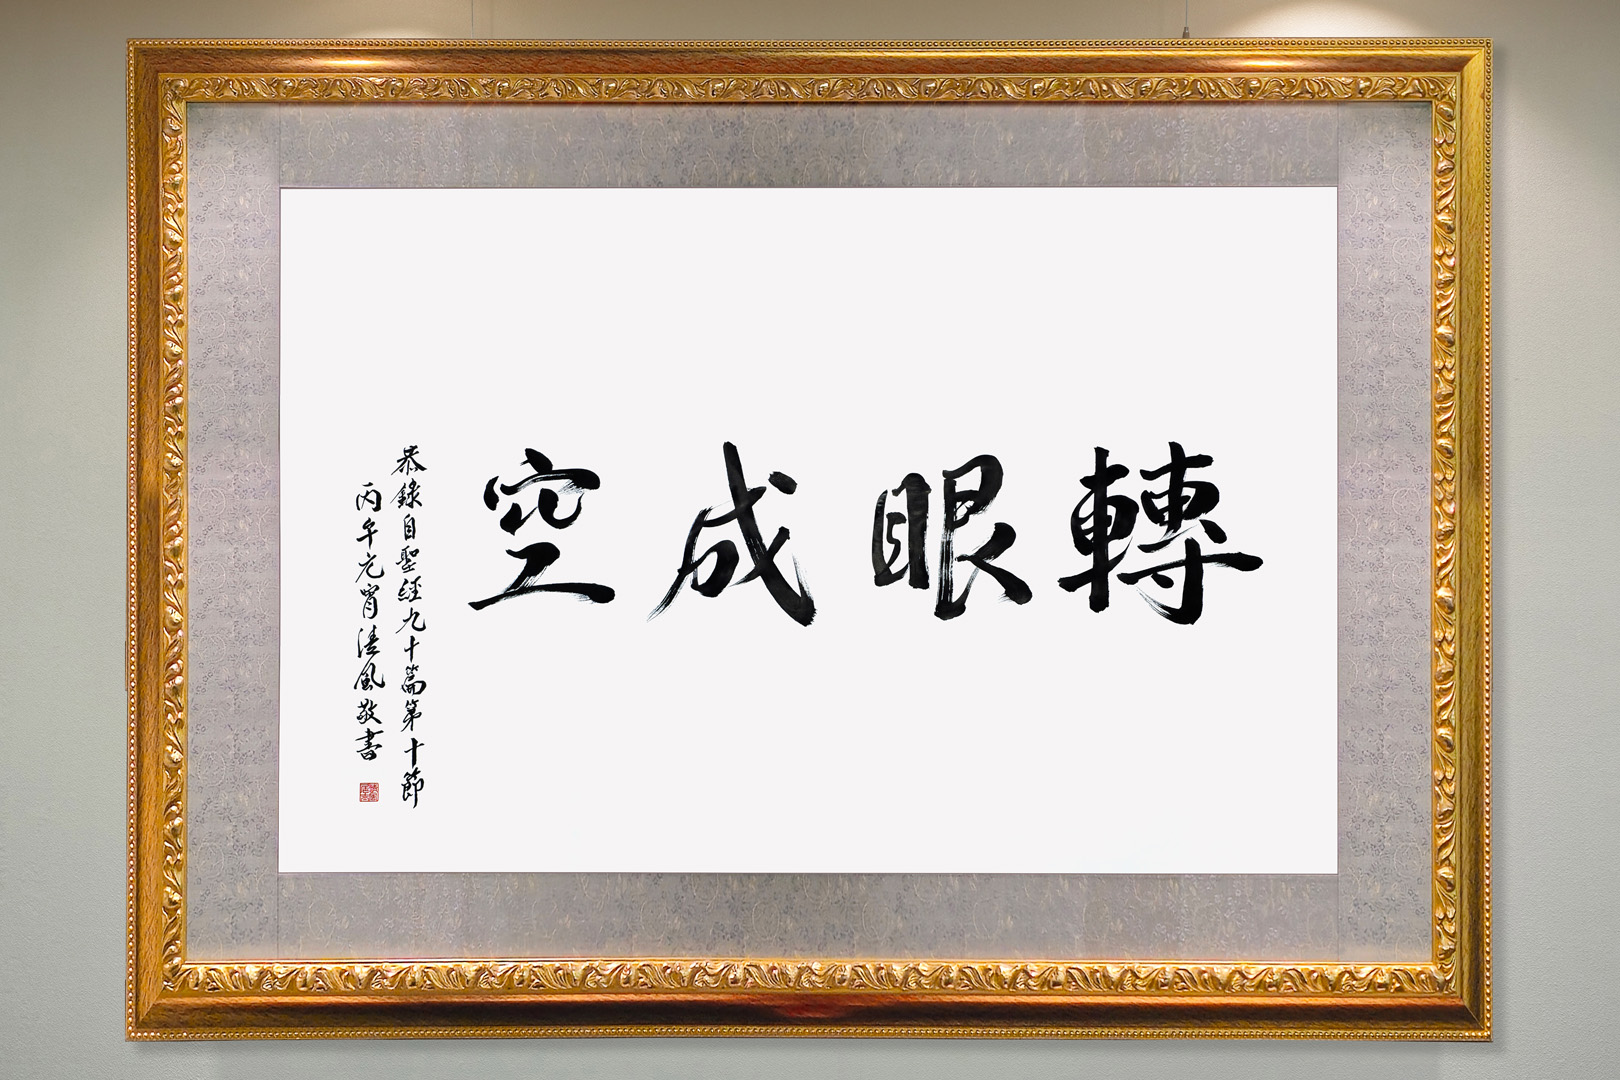 轉眼成空
恭錄自聖經九十篇第十節
丙午元宵清風敬書